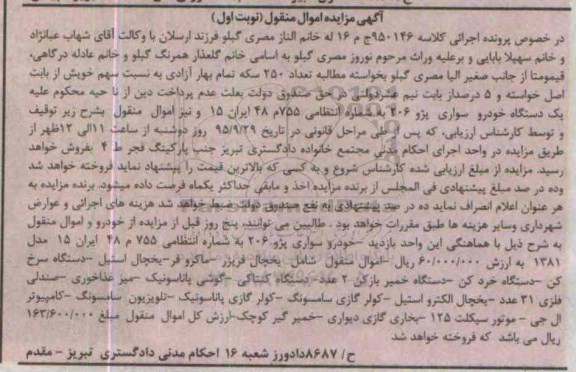 آگهی مزایده اموال منقول (نوبت اول)
در خصوص پرونده اجرائی کلاسه ۹۵۰۱۴۶ج م ۱۶ له خانم الناز مصری گبلو فرزند ارسلان با وکالت آقای شهاب عبانژاد
و خانم سهیلا بابایی و برعلیه وراث مرحوم نوروز مصری گبلو به اسامی خانم گلعذار همرنگ گبلو و خانم عادله درگاهی،
قیمومتا از جانب صغیر الیا مصری گبلو بخواسته مطالبه تعداد ۲۵۰ سکه تمام بهار آزادی به نسبت سهم خویش از بابت
اصل خواسته و ۵ درصداز بابت نیم عشردولتی در حق صندوق دولت بعلت عدم پرداخت دین از نا حیه محکوم علیه
یک دستگاه خودرو سواری پژو ۲۰۶ به شماره انتظامی ۷۵۵م ۴۸ ایران ۱۵ و نیز اموال منقول بشرح زیر توقیف
و توسط کارشناس ارزیابی، که پس از طی مراحل قانونی در تاریخ ۹۵/۹/۲۹ روز دوشنبه از ساعت ۱۱الی ۱۲ظهر از
طریق مزایده در واحد اجرای احکام مدنی مجتمع خانواده دادگستری تبریز جنب پارکینگ فجر ط ۴ بفروش خواهد
رسید. مزایده از مبلغ ارزیابی شده کارشناس شروع و به کسی که بالاترین قیمت را پیشنهاد نماید فروخته خواهد شد
وده در صد مبلغ پیشنهادی فی المجلس از برنده مزایده اخذ و مابقی حداکثر یکماه فرصت داده میشود. برنده مزایده به
هر عنوان اعلام انصراف نماید ده در صد پیشنهادی به نفع صندوق دولت ضبط خواهد شد هزینه های اجرائی و عوارض
شهرداری وسایر هزینه ها طبق مقررات خواهد بود . طالبین می توانند، پنج روز قبل از مزایده از خودرو و اموال منقول
به شرح ذیل با هماهنگی این واحد بازدید –خودرو سواری پژو ۲۰۶ به شماره انتظامی ۷۵۵ م ۴۸ ایران ۱۵ مدل
۱۳۸۱ به ارزش ۶۰/۰۰۰/۰۰۰ ریال –اموال منقول شامل یخچال فریزر –ماکرو فر–یخچال استیل –دستگاه سرخ
کن –دستگاه خرد کن –دستگاه خمیر بازکن ۲ عدد –دستگاه کنتاکی –گوشی پاناسونیک –میز غذاخوری –صندلی
فلزی ۳۱ عدد –یخچال الکترو استیل –کولر گازی سامسونگ –کولر گازی پاناسونیک –تلویزیون سامسونگ –کامپیوتر
ال جی – موتور سیکلت ۱۲۵ –بخاری گازی دیواری –خمیر گیر کوچک–ارزش کل اموال منقول مبلغ ۱۶۳/۶۰۰/۰۰۰
ریال می باشد که فروخته خواهد شد
ح/ ۸۶۸۷دادورز شعبه ۱۶ احکام مدنی دادگستری تبریز – مقدم